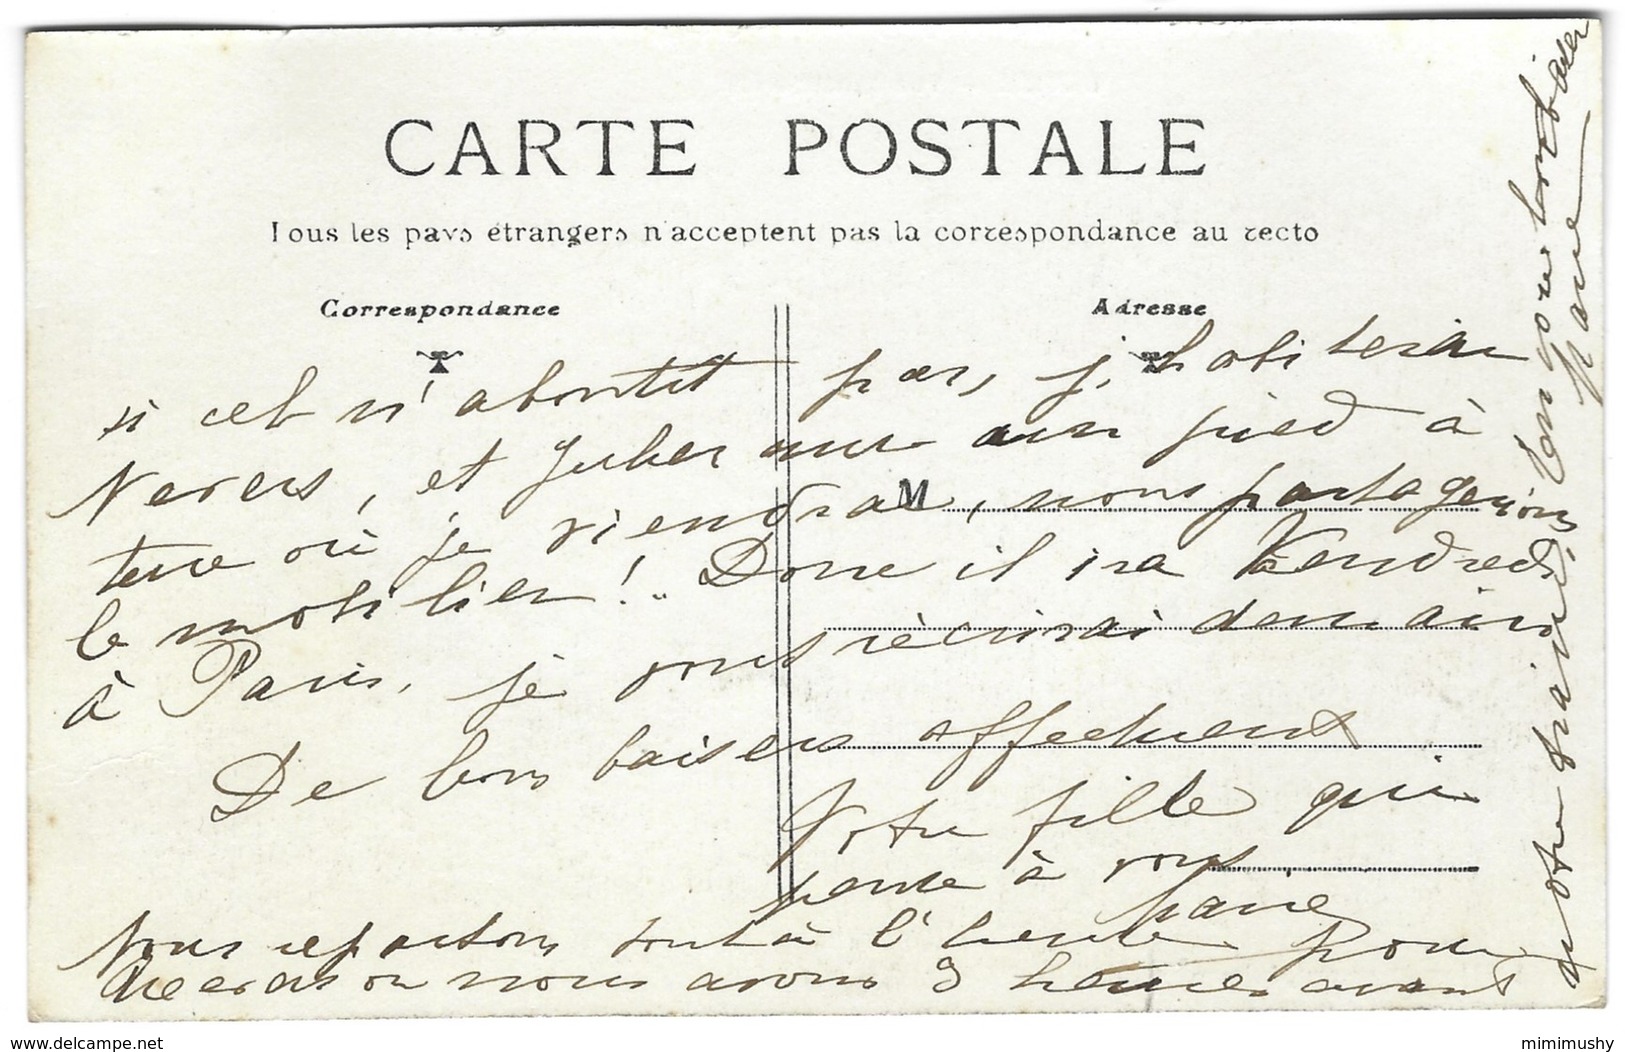 CARTE POSTALE
Tous les pays étrangers n'acceptent pas la correspondance au recto
Correspondance
Adresse
si cet n'aboutit pas, j'habiterai
Nevers, et aura un pied à
terre où je viendrai, nous partagerions
M
le mobilier! .. Donc il ira Vendredi
à Paris, je vous récrirai demain
De bons baisers affectueux
Votre fille qui
pense à vous
Marie
Nous repartons tout à l'heure pour
Nevers où nous avons 3 heures avant
notre train, Encore bon baiser
Marie
delcampe.net
mimimushy